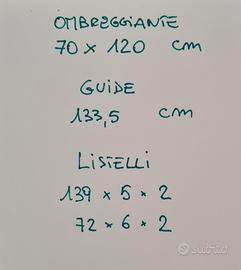 OMBREGGIANTE
70 x 120 cm
GUIDE
133,5 cm
LISTELLI
139 x 5 x 2
72 x 6 x 2
subito